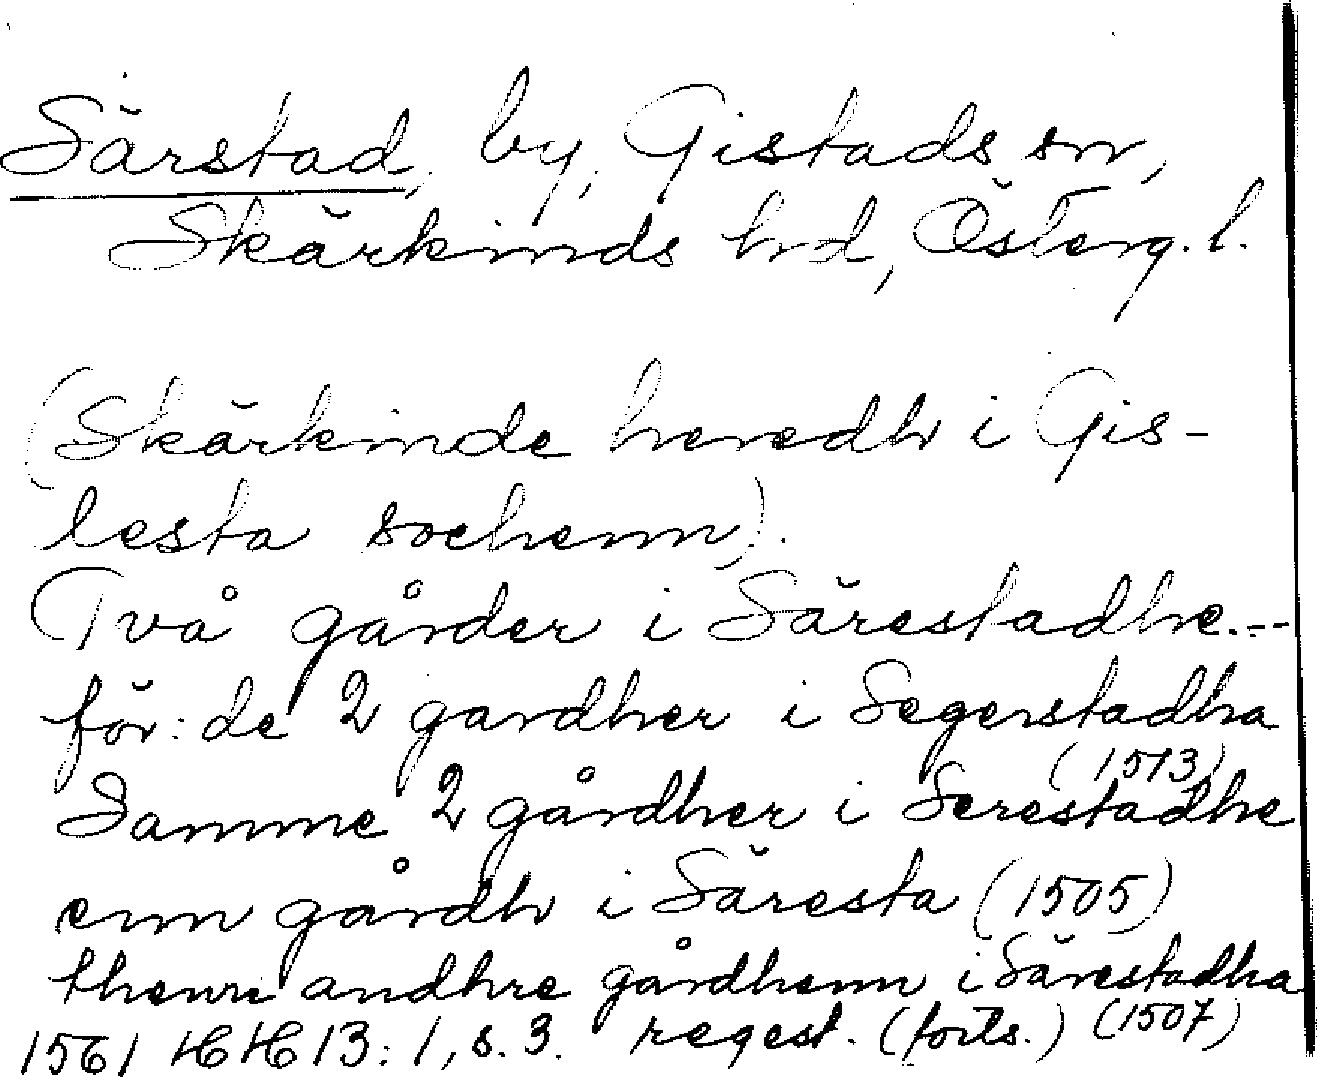 Särstad, by, Gistads sn,
Skärkinds hrd, Österg. l.
(Skärkinde heredh i Gis-
lesta sochenn).
Två gårder i Särestadhe.--
för: de 2 gardher i Segerstadha
(1513)
Samme 2 gårdher i Serestadhe
enn gårdh i Säresta (1505)
thenn andhre gårdhenn i Särestadha
1561 HH 13: 1, s. 3. regest. (forts.) (1507)